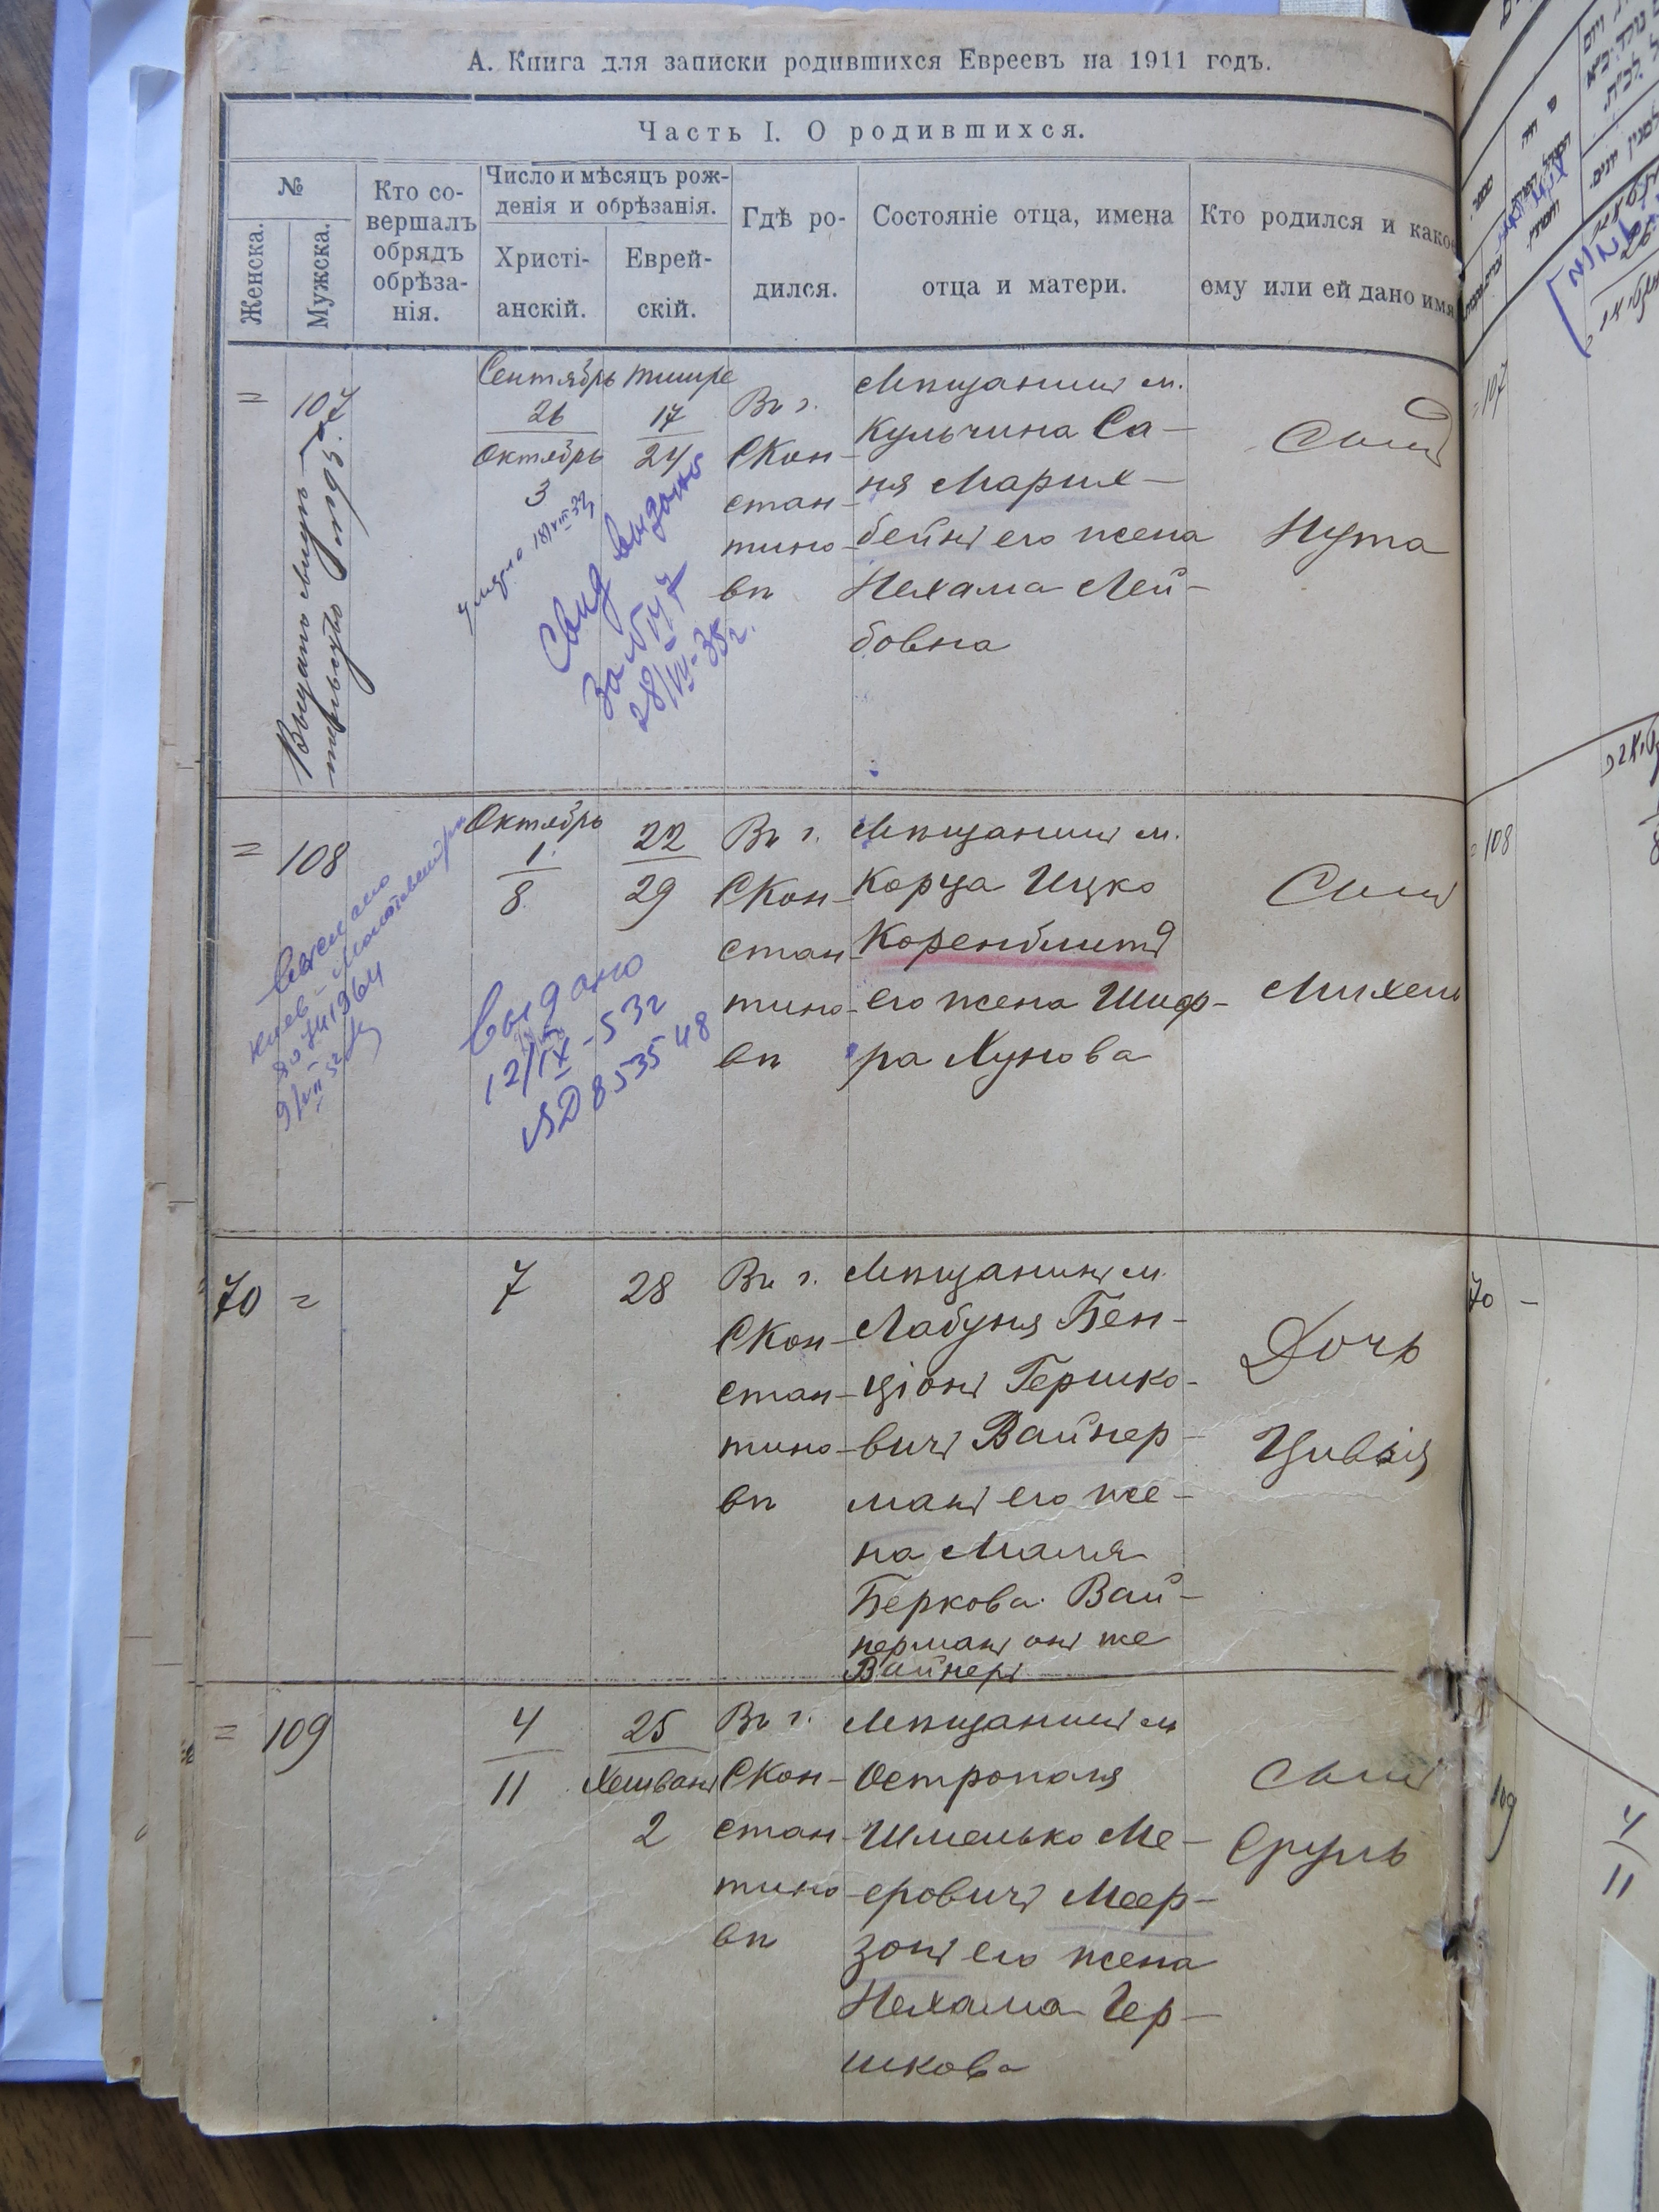 А. Книга для записки родившихся Евреевъ на 1911 годъ.
Часть I. О родившихся.
№
Женска.
Мужска.
Кто со-
вершалъ
обрядъ
обрѣза-
нія.
Число и мѣсяцъ рож-
денія и обрѣзанія.
Христі-
анскій.
Еврей-
скій.
Гдѣ ро-
дился.
Состояніе отца, имена
отца и матери.
Кто родился и какое
ему или ей дано имя
=
107
Сентябрь
26
Октябрь
3
тишре
17
24
Въ г.
СКон-
стан-
тино-
вѣ
Мѣщанинъ м.
Кульчина Са-
ня Марих-
бейнъ его жена
Нехама Лей-
бовна
Сынъ
Нута
Свид выдано
За №147
28/VII-35г.
=
108
Октябрь
1
8
22
29
Въ г.
СКон-
стан-
тино-
вѣ
Мѣщанинъ м.
Корца Ицко
Коренблитъ
его жена Шиф-
ра Хунова
Сынъ
Михель
выдано
12/IX-53г
853548
70
=
7
28
Въ г.
СКон-
стан-
тино-
вѣ
Мѣщанинъ м.
Лабуня Бен-
ціонъ Гершко-
вичъ Вайнер-
манъ его же-
на Маля
Беркова Вай-
нерманъ онъ же
Вайнеръ
Дочь
Цивья
=
109
4
11
25
Хешванъ
2
Въ г.
СКон-
стан-
тино-
вѣ
Мѣщанинъ м
Острополя
Шмелько Ме-
еровичъ Меер-
зонъ его жена
Нехама Гер-
шкова
Сынъ
Сруль
107
108
70 -
109
4
11